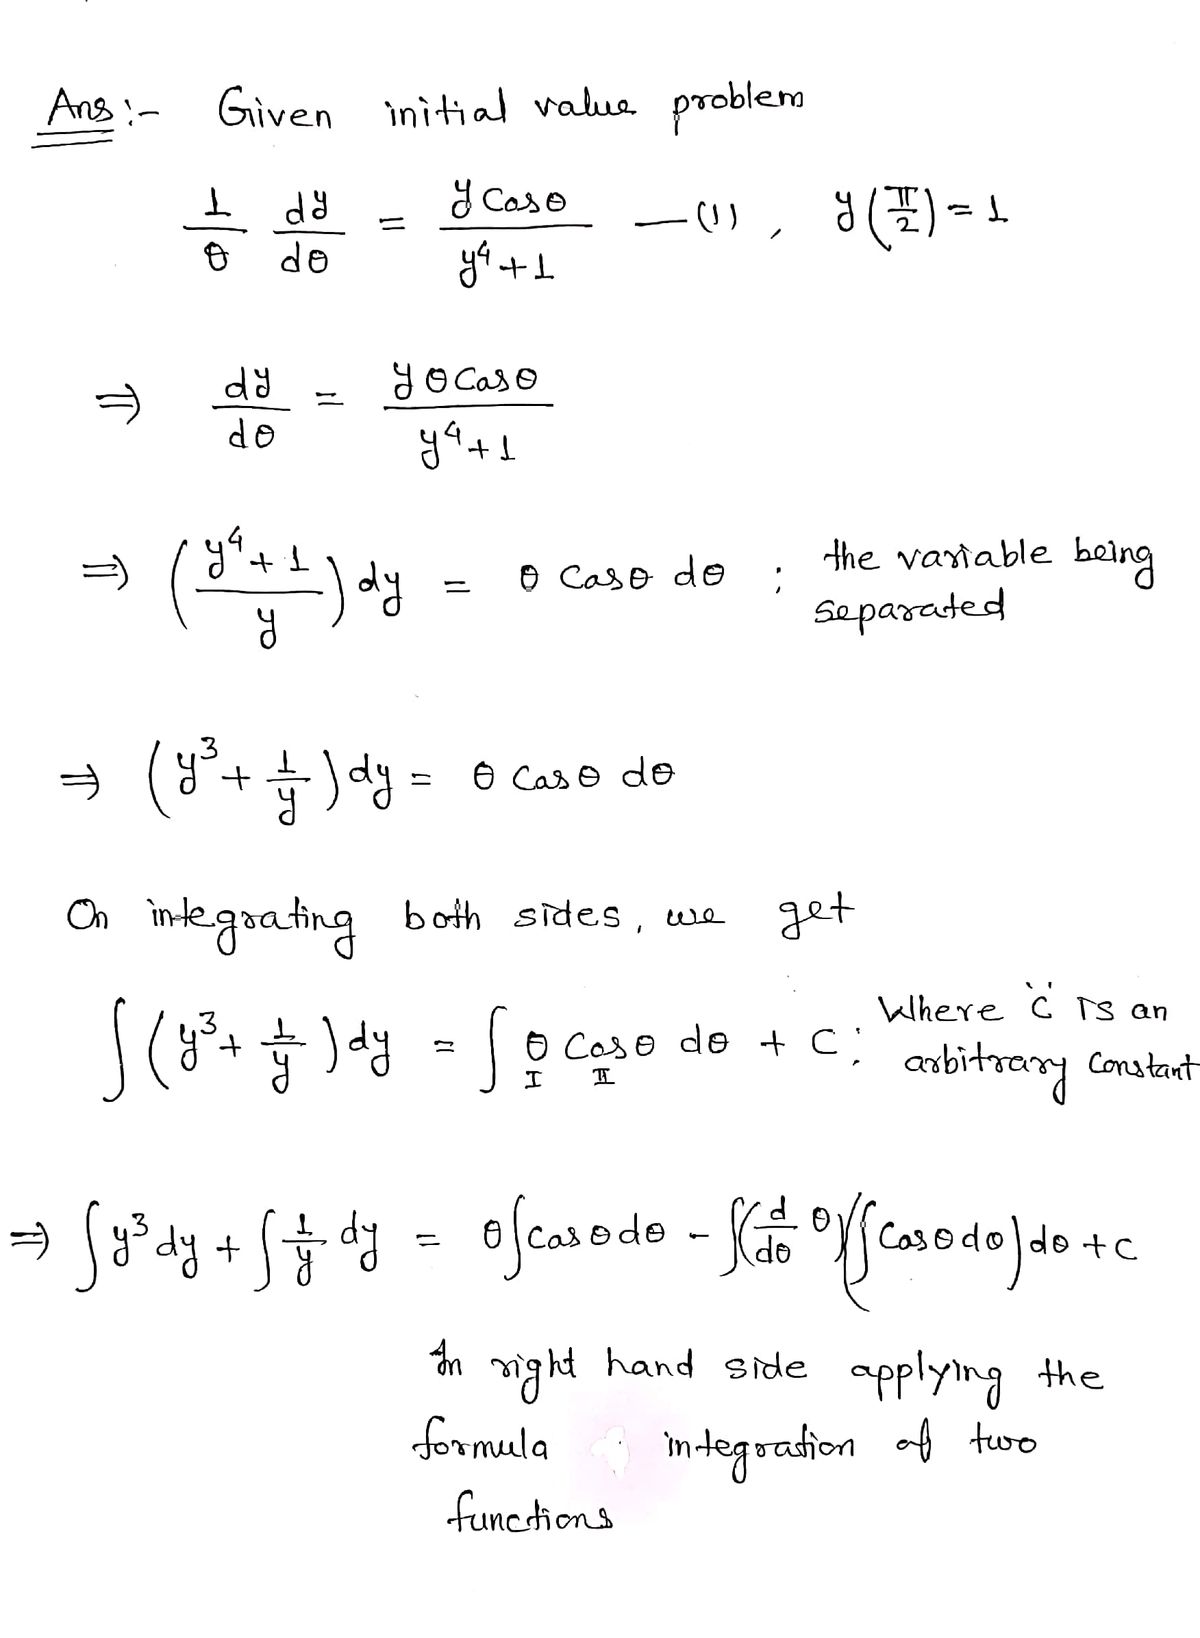 Ans :- Given initial value problem
1/θ dy/dθ = y Cosθ / y⁴+1 —(1), y(π/2) = 1
⇒ dy/dθ = y θ Cosθ / y⁴+1
⇒ (y⁴+1 / y) dy = θ Cosθ dθ ; the variable being separated
⇒ (y³ + 1/y) dy = θ Cosθ dθ
On integrating both sides, we get
∫ (y³ + 1/y) dy = ∫ θ Cosθ dθ + C ; Where 'c' is an
I II arbitrary Constant
⇒ ∫ y³ dy + ∫ 1/y dy = θ ∫ cosθ dθ - ∫ (d/dθ θ)(∫ Cosθ dθ) dθ + C
In right hand side applying the
formula integration of two
functions